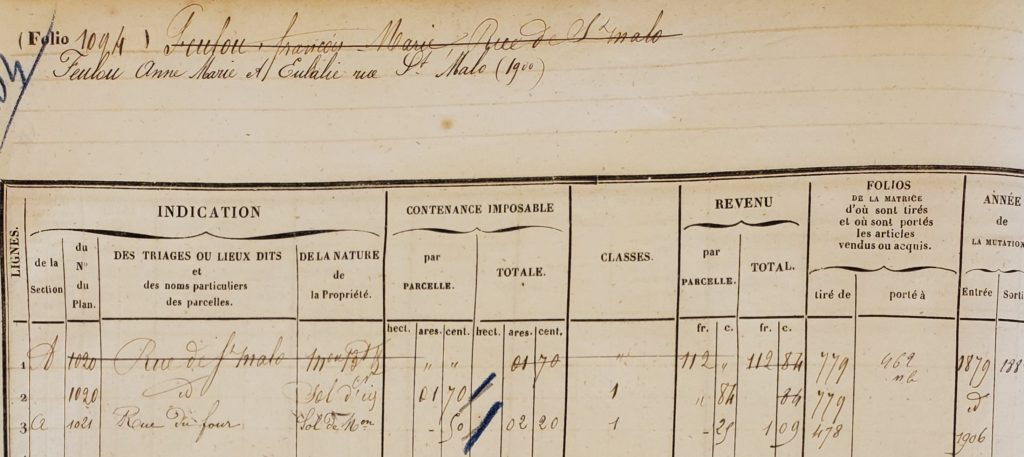 (Folio 1094) Feulou, françois Marie, Rue de St malo
Feulou Anne Marie et Eulalie rue St Malo (1900)
LIGNES.
INDICATION
de la Section
du No du Plan.
DES TRIAGES OU LIEUX DITS et des noms particuliers des parcelles.
DE LA NATURE de la Propriété.
CONTENANCE IMPOSABLE
par PARCELLE.
TOTALE.
CLASSES.
REVENU
par PARCELLE.
TOTAL.
FOLIOS DE LA MATRICE d'où sont tirés et où sont portés les articles vendus ou acquis.
tiré de
porté à
ANNÉE de LA MUTATION
Entrée
Sorti
hect. ares. cent. hect. ares. cent. fr. c. fr. c.
1 A 1020 Rue de St malo Mon " " 01 70 " 112 " 112 84 779 962 1879 188
2 1020 id Sol d' 01 70 1 " 84 84 779 id
3 A 1021 Rue du four Sol de Mon - 50 02 20 1 - 25 1 09 478 1906